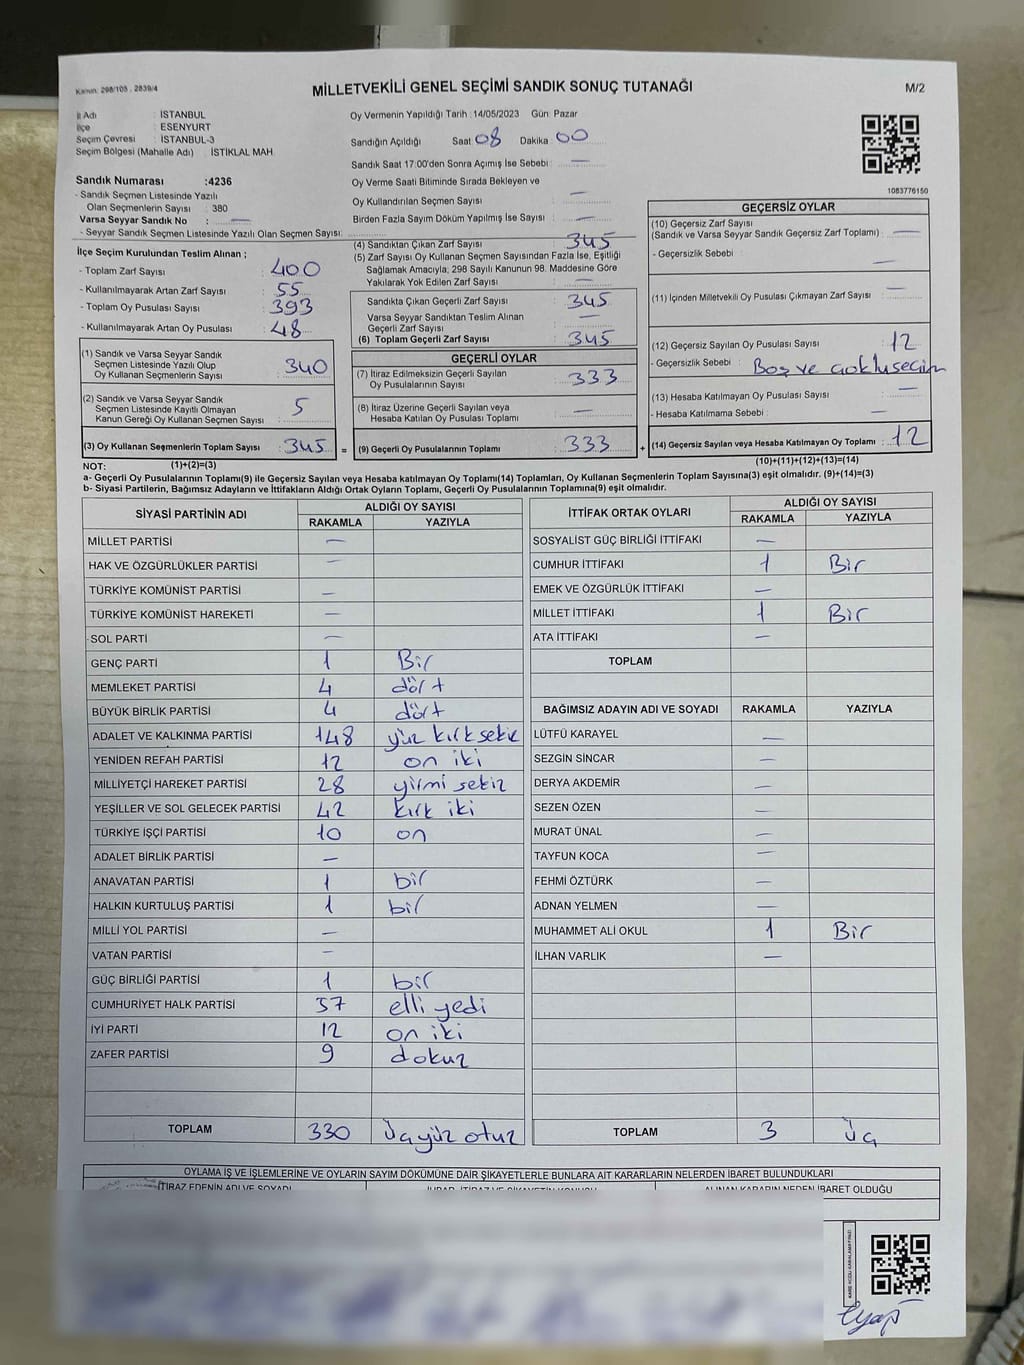 Kanun: 298/105 , 2839/4
MİLLETVEKİLİ GENEL SEÇİMİ SANDIK SONUÇ TUTANAĞI
M/2
İl Adı : İSTANBUL
İlçe : ESENYURT
Seçim Çevresi : İSTANBUL-3
Seçim Bölgesi (Mahalle Adı) : İSTİKLAL MAH.
Sandık Numarası :4236
- Sandık Seçmen Listesinde Yazılı
Olan Seçmenlerin Sayısı : 380
Varsa Seyyar Sandık No : —
- Seyyar Sandık Seçmen Listesinde Yazılı Olan Seçmen Sayısı:
Oy Vermenin Yapıldığı Tarih :14/05/2023 Gün: Pazar
Sandığın Açıldığı Saat 08 Dakika 00
Sandık Saat 17:00'den Sonra Açımış İse Sebebi : —
Oy Verme Saati Bitiminde Sırada Bekleyen ve
Oy Kullandırılan Seçmen Sayısı : —
Birden Fazla Sayım Döküm Yapılmış İse Sayısı : —
1083776150
İlçe Seçim Kurulundan Teslim Alınan ;
- Toplam Zarf Sayısı : 400
- Kullanılmayarak Artan Zarf Sayısı : 55
- Toplam Oy Pusulası : 393
- Kullanılmayarak Artan Oy Pusulası : 48
(1) Sandık ve Varsa Seyyar Sandık
Seçmen Listesinde Yazılı Olup
Oy Kullanan Seçmenlerin Sayısı : 340
(2) Sandık ve Varsa Seyyar Sandık
Seçmen Listesinde Kayıtlı Olmayan
Kanun Gereği Oy Kullanan Seçmen Sayısı : 5
(3) Oy Kullanan Seçmenlerin Toplam Sayısı : 345 =
(4) Sandıktan Çıkan Zarf Sayısı : 345
(5) Zarf Sayısı Oy Kullanan Seçmen Sayısından Fazla İse, Eşitliği
Sağlamak Amacıyla, 298 Sayılı Kanunun 98. Maddesine Göre
Yakılarak Yok Edilen Zarf Sayısı : —
Sandıkta Çıkan Geçerli Zarf Sayısı : 345
Varsa Seyyar Sandıktan Teslim Alınan
Geçerli Zarf Sayısı : —
(6) Toplam Geçerli Zarf Sayısı : 345
GEÇERLİ OYLAR
(7) İtiraz Edilmeksizin Geçerli Sayılan
Oy Pusulalarının Sayısı : 333
(8) İtiraz Üzerine Geçerli Sayılan veya
Hesaba Katılan Oy Pusulası Toplamı : —
(9) Geçerli Oy Pusulalarının Toplamı : 333 +
GEÇERSİZ OYLAR
(10) Geçersiz Zarf Sayısı
(Sandık ve Varsa Seyyar Sandık Geçersiz Zarf Toplamı) : —
- Geçersizlik Sebebi : —
(11) İçinden Milletvekili Oy Pusulası Çıkmayan Zarf Sayısı : —
(12) Geçersiz Sayılan Oy Pusulası Sayısı : 12
- Geçersizlik Sebebi : Boş ve çoklu seçim
(13) Hesaba Katılmayan Oy Pusulası Sayısı : —
- Hesaba Katılmama Sebebi : —
(14) Geçersiz Sayılan veya Hesaba Katılmayan Oy Toplamı : 12
NOT: (1)+(2)=(3)
(10)+(11)+(12)+(13)=(14)
a- Geçerli Oy Pusulalarının Toplamı(9) ile Geçersiz Sayılan veya Hesaba katılmayan Oy Toplamı(14) Toplamları, Oy Kullanan Seçmenlerin Toplam Sayısına(3) eşit olmalıdır. (9)+(14)=(3)
b- Siyasi Partilerin, Bağımsız Adayların ve İttifakların Aldığı Ortak Oyların Toplamı, Geçerli Oy Pusulalarının Toplamına(9) eşit olmalıdır.
SİYASİ PARTİNİN ADI ALDIĞI OY SAYISI
RAKAMLA YAZIYLA
MİLLET PARTİSİ —
HAK VE ÖZGÜRLÜKLER PARTİSİ —
TÜRKİYE KOMÜNİST PARTİSİ —
TÜRKİYE KOMÜNİST HAREKETİ —
SOL PARTİ —
GENÇ PARTİ 1 Bir
MEMLEKET PARTİSİ 4 dört
BÜYÜK BİRLİK PARTİSİ 4 dört
ADALET VE KALKINMA PARTİSİ 148 yüz kırk sekiz
YENİDEN REFAH PARTİSİ 12 on iki
MİLLİYETÇİ HAREKET PARTİSİ 28 yirmi sekiz
YEŞİLLER VE SOL GELECEK PARTİSİ 42 kırk iki
TÜRKİYE İŞÇİ PARTİSİ 10 on
ADALET BİRLİK PARTİSİ —
ANAVATAN PARTİSİ 1 bir
HALKIN KURTULUŞ PARTİSİ 1 bir
MİLLİ YOL PARTİSİ —
VATAN PARTİSİ —
GÜÇ BİRLİĞİ PARTİSİ 1 bir
CUMHURİYET HALK PARTİSİ 57 elli yedi
İYİ PARTİ 12 on iki
ZAFER PARTİSİ 9 dokuz
TOPLAM 330 üçyüz otuz
İTTİFAK ORTAK OYLARI ALDIĞI OY SAYISI
RAKAMLA YAZIYLA
SOSYALİST GÜÇ BİRLİĞİ İTTİFAKI —
CUMHUR İTTİFAKI 1 Bir
EMEK VE ÖZGÜRLÜK İTTİFAKI —
MİLLET İTTİFAKI 1 Bir
ATA İTTİFAKI —
TOPLAM
BAĞIMSIZ ADAYIN ADI VE SOYADI RAKAMLA YAZIYLA
LÜTFÜ KARAYEL —
SEZGİN SİNCAR —
DERYA AKDEMİR —
SEZEN ÖZEN —
MURAT ÜNAL —
TAYFUN KOCA —
FEHMİ ÖZTÜRK —
ADNAN YELMEN —
MUHAMMET ALİ OKUL 1 Bir
İLHAN VARLIK —
TOPLAM 3 üç
OYLAMA İŞ VE İŞLEMLERİNE VE OYLARIN SAYIM DÖKÜMÜNE DAİR ŞİKAYETLERLE BUNLARA AİT KARARLARIN NELERDEN İBARET BULUNDUKLARI
İTİRAZ EDENİN ADI VE SOYADI
ALINAN KARARIN NEDEN İBARET OLDUĞU